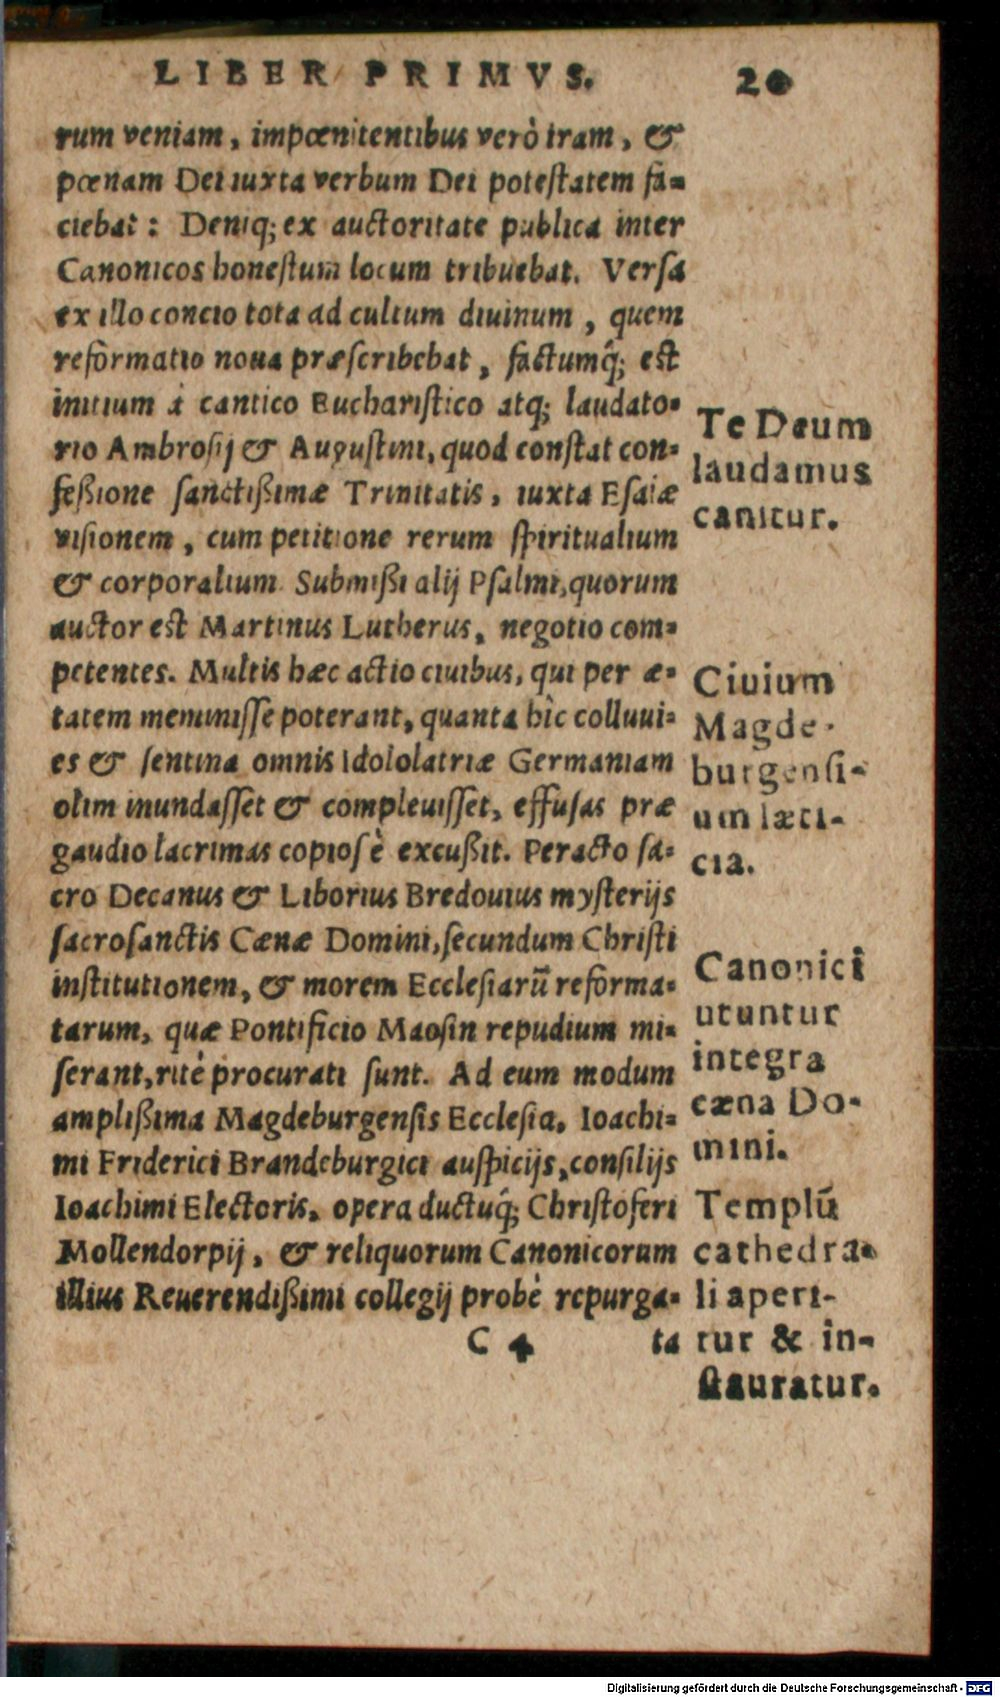 LIBER PRIMVS. 20
rum veniam, impœnitentibus verò iram, &
pœnam Dei iuxta verbum Dei potestatem fa-
ciebat: Deniq; ex auctoritate publica inter
Canonicos honestum locum tribuebat. Versa
ex illo concio tota ad cultum diuinum, quem
reformatio noua præscribebat, factumq́; est
initium à cantico Eucharistico atq; laudato-
rio Ambrosij & Augustini, quod constat con-
feßione sanctißimæ Trinitatis, iuxta Esaiæ
visionem, cum petitione rerum spiritualium
& corporalium. Submißi alij Psalmi, quorum
auctor est Martinus Lutherus, negotio com-
petentes. Multis hæc actio ciuibus, qui per æ-
tatem meminisse poterant, quanta hîc colluui-
es & sentina omnis Idololatriæ Germaniam
olim inundasset & compleuisset, effusas præ
gaudio lacrimas copiosè excußit. Peracto sa-
cro Decanus & Liborius Bredouius mysterijs
sacrosanctis Cænæ Domini, secundum Christi
institutionem, & morem Ecclesiarũ reforma-
tarum, quæ Pontificio Maosin repudium mi-
serant, ritè procurati sunt. Ad eum modum
amplißima Magdeburgensis Ecclesia, Ioachi-
mi Friderici Brandeburgici auspicijs, consilijs
Ioachimi Electoris, opera ductuq́; Christoferi
Mollendorpij, & reliquorum Canonicorum
illius Reuerendißimi collegij probè repurga-
C 4 ta
Te Deum
laudamus
canitur.
Ciuium
Magde-
burgensi-
um læti-
cia.
Canonici
utuntur
integra
cæna Do-
mini.
Templũ
cathedra-
li aperi-
tur & in-
stauratur.
Digitalisierung gefördert durch die Deutsche Forschungsgemeinschaft - DFG